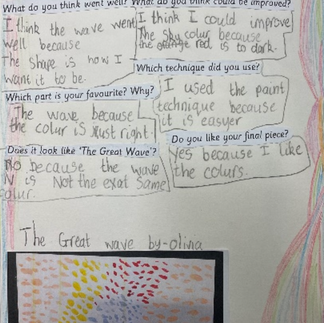 What do you think went well? What do you think could be improved?
I think the wave went
well because
The shape is how I
want it to be.
I think I could improve
The sky colour because
the orange red is to dark.
Which technique did you use?
I used the paint
technique because
it is easyer
Which part is your favourite? Why?
The wave because
the colur is Just right
Do you like your final piece?
yes because I like
the colurs
Does it look like 'The Great Wave'?
No because the wave
is Not the exat same
olur.
The Great wave by-olina